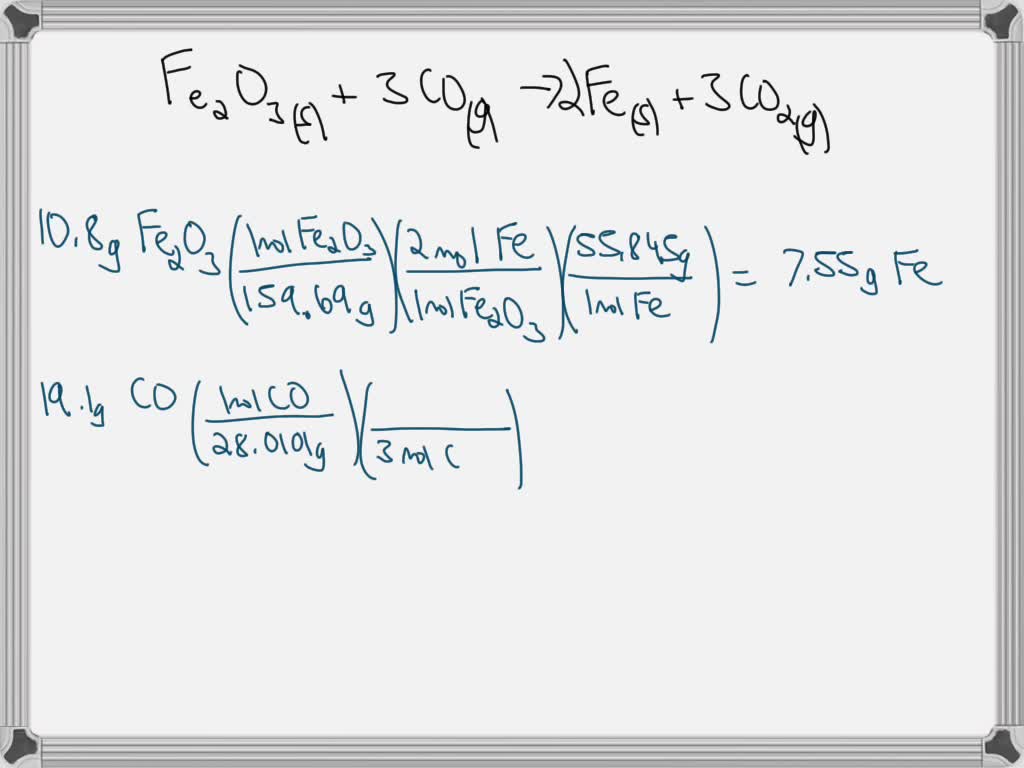 Fe₂O₃(s) + 3CO(g) → 2Fe(s) + 3CO₂(g)
10.8g Fe₂O₃ (1mol Fe₂O₃ / 159.69g) (2 mol Fe / 1mol Fe₂O₃) (55.845g / 1mol Fe) = 7.55g Fe
19.1g CO (1mol CO / 28.0101g) ( / 3 mol C )